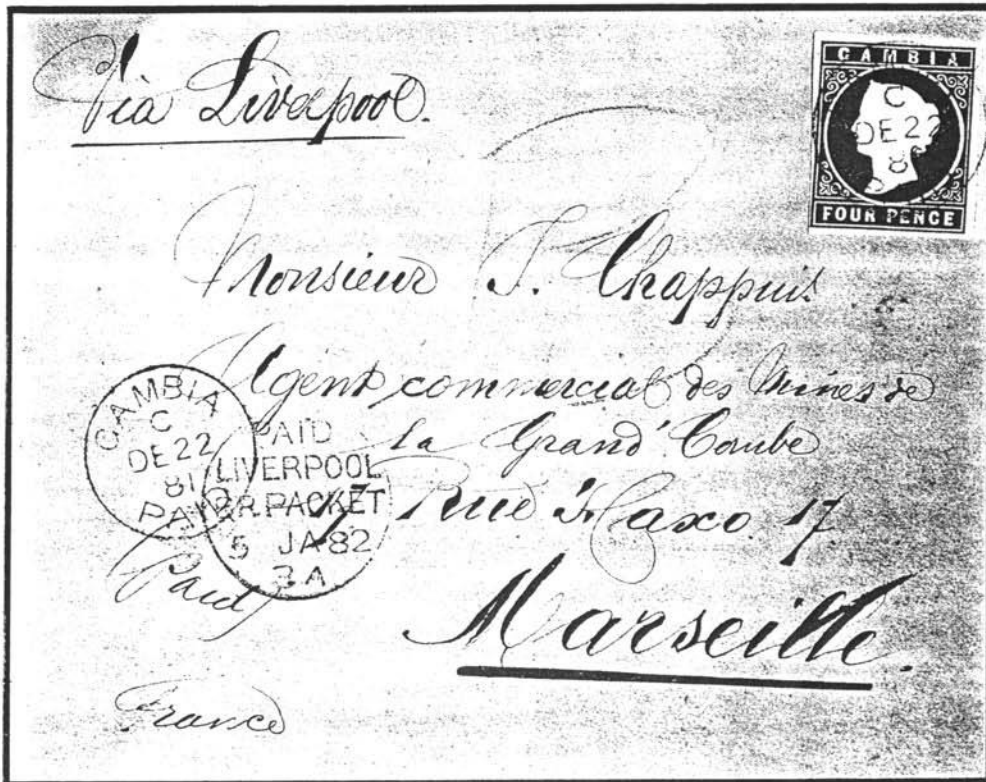 Via Liverpool.
GAMBIA
C
DE 22
8
FOUR PENCE
Monsieur J. Chappuis
Agent commercial des Mines de
la Grand' Combe
17 Rue Haxo 17.
Marseille.
France
GAMBIA
C
DE 22
81
PAID
PAID
LIVERPOOL
BR. PACKET
5 JA 82
3 A
Paid